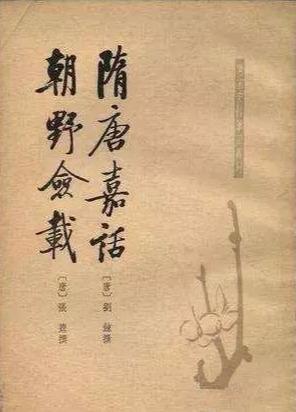 隋唐嘉話
〔唐〕劉餗撰
朝野僉載
〔唐〕張鷟撰